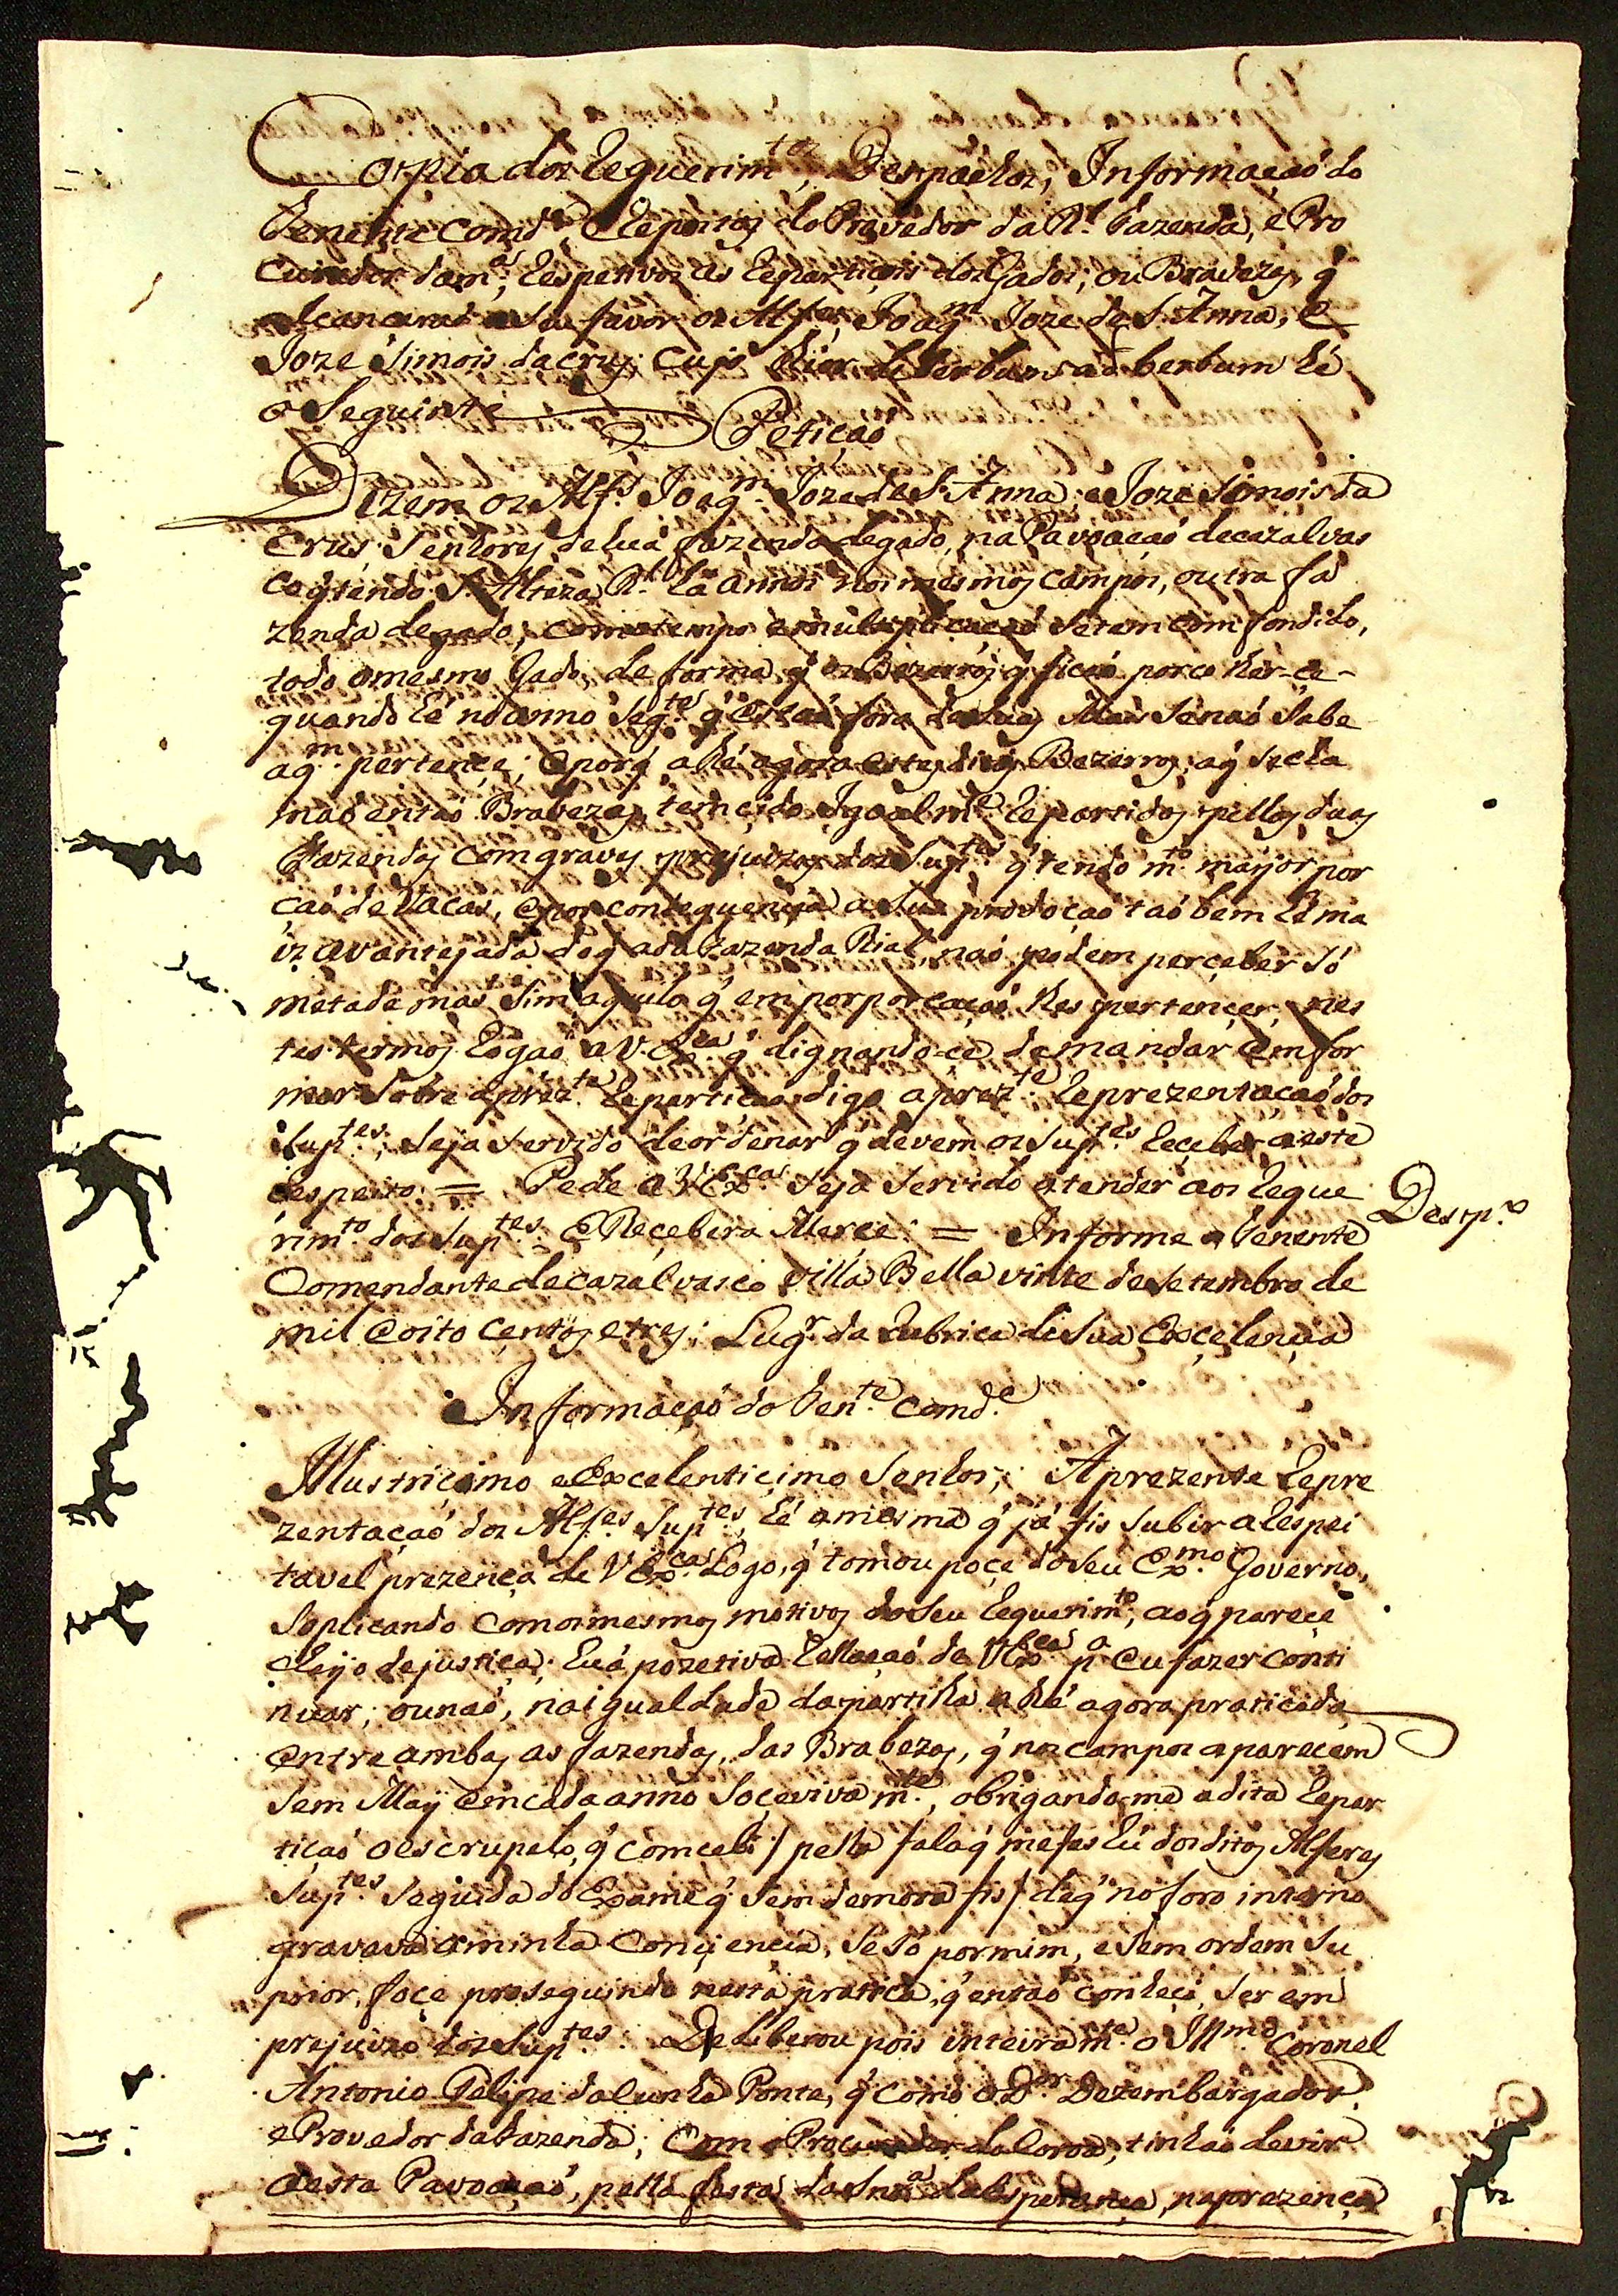 Copia dos Requerim.tos, Despachos, Informaçaó do
Tenente Comd.e, e Repostas do Provedor da R.l Fazenda, e Pro
curador da m.a; Respetivos as Repartiçois dos Gados; ou Brabezas, q̃
alcançaraó a Seu favor os Alf.es Joaq.m Joze de S. Anna, e
Joze Simois da Cruz; cujo theor de Verbum ad berbum hé
o Seguinte
Petiçaó
Dizem os Alf.s Joaq.m Joze de S. Anna e Joze Simois da
Crus, Senhores de huã fazenda de gado, na Pavoaçaó de cazalvas
co q̃ tendo S. Alteza R.l ha annos nos mesmos campos, outra fa
zenda de gado; com o tempo e multiplicaçaó se tem com fondido,
todo o mesmo Gado, de forma q̃ os Bezerros q̃ ficaó por co lher-ce-
quando hé no anno seg.te q̃ estaó fora das suas Mais se naó sabe
aq.m pertençe; e porq̃ a thé agora estes ditos Bezerros; aq̃ se cha
maó entaó Brabezas, tem cido Igoalm.te Repartidos pellas duas
Fazendas com graves prejuizos dos Sup.tes q̃ tendo m.to mayor por
çaó de Vacas, e por conseguençia a sua prodoçaó taó bem hé ma
is avantejada do q̃ a da Fazenda Rial, naó podem perçeber só
metade mas sim aquilo q̃ em porporçaó lhes pertençer, nes
tes termos Rogaó a V. Ex.ca q̃ dignando-ce de mandar emfor
mar sobre a prez.te Repartiçaó digo a prez.te Reprezentaçaó dos
Sup.tes; seja servido de ordenar q̃ devem os Sup.tes Reçeber a este
Respeito = Pede a V Ex.cas seja servido atender aos Reque
rim.to dos Sup.tes E Reçebera Merce: = Informe o Tenente
Desp.o
Comendante de cazalvasco Villa Bella vinte de Setembro de
mil e oito çentos e tres: Lug.r da Rubrica de Sua Exçelençia
Informaçaó do Ten.te Comd.e
Illustriçimo e Excelentiçimo Senhor; A prezente Repre
zentaçaó dos Alf.es Sup.tes, hé a mesma q̃ já fis subir a Respei
tavel prezença de V Ex.cas Logo, q̃ tomou poçe do seu Ex.mo Governo,
Soplicando com os mesmos motivos do seu Requerim.to; ao q̃ pareçe
cheyo de justiça; huã pozetiva Rellaçaó de V Ex.ca p.a eu fazer conti
nuar; ou naó, na igualdade da partilha a thé agora praticada
entre ambas as fazendas, das Brabezas, q̃ nos campos apareçem
sem May em cada anno soçeviva m.te, obrigando-me a dita Repar
tiçaó o escrupelo, q̃ comcebi / pella fala q̃ me fes hũ dos ditos Alferes
Sup.tes seguida do Exame q̃ sem demora fis / de q̃ no foro interno
gravava a minha Conçiençia, se só por mim, e sem ordem Su
prior, foçe proseguindo nesta pratica, q̃ entaó conheçi, ser em
prejuizo dos Sup.tes: DeLiberou pois inteiram.te o Ill.mo Coronel
Antonio Felipe da Cunha Ponte, q̃ como o D.or Dezembargador,
e Provedor da Fazenda; com o Procurador da Coroa, tinhaó de vir
a esta Pavoaçaó, pella festa da Snr.a da Esperança, na prezença